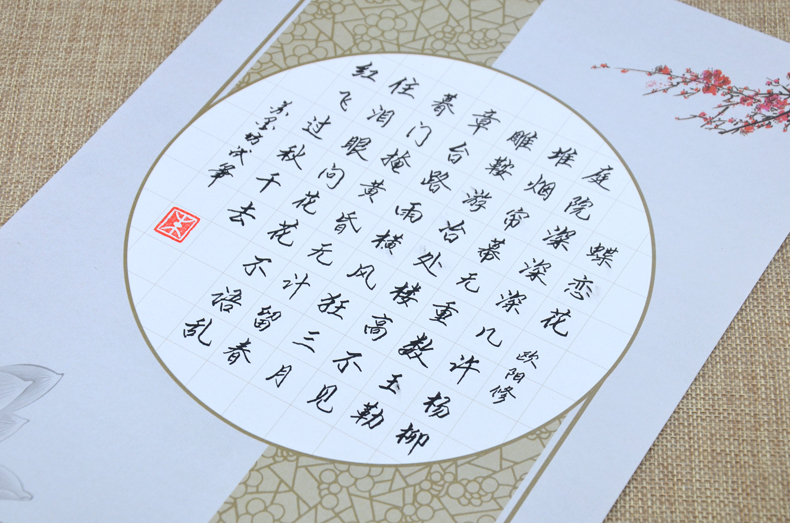 蝶恋花 欧阳修
庭院深深深几许杨柳
堆烟帘幕无重数玉勒
雕鞍游冶处楼高不见
章台路雨横风狂三月
暮门掩黄昏无计留春
住泪眼问花花不语乱
红飞过秋千去
苏墨坊茂笔